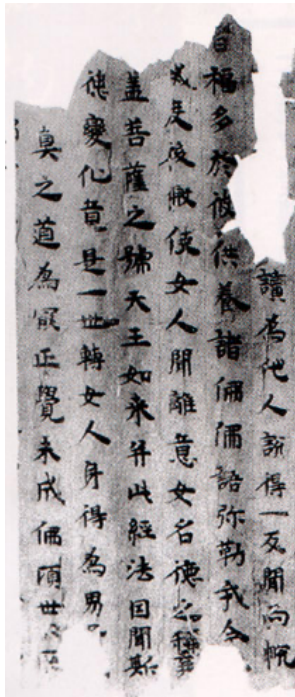 讀為他人說得一反聞而
福多於彼供養諸佛佛語弥勒我今
滅度後設使女人聞離意女名德之稱棄
蓋菩薩之號天王如来并此經法因聞斯
德變化竟是一世轉女人身得為男
真之道為最正覺未成佛頃世